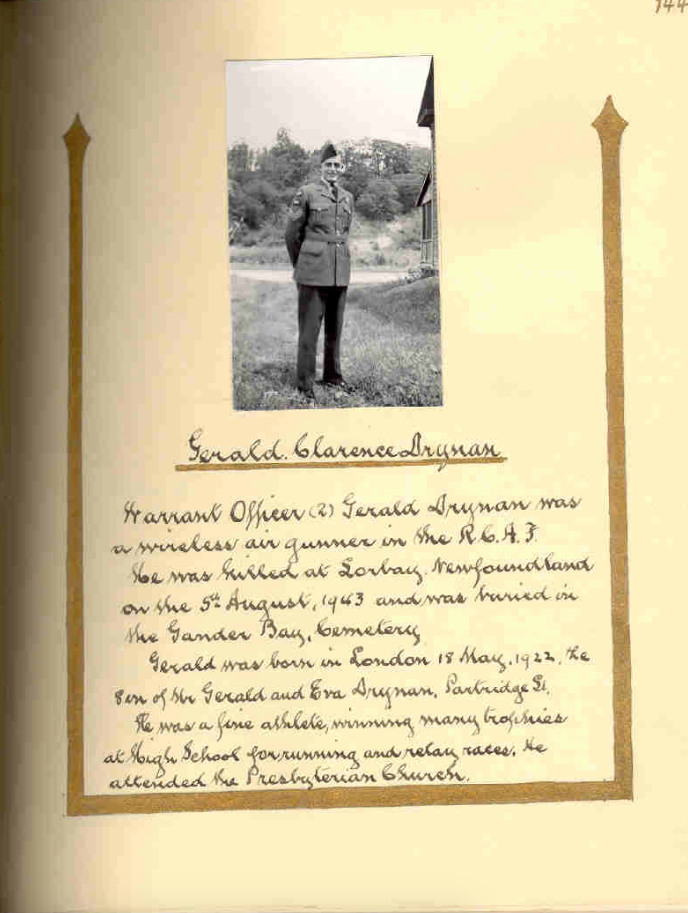 144
Gerald. Clarence Drynan
Warrant Officer (2) Gerald Drynan was
a wireless air gunner in the R.C.A.F.
He was killed at Torbay, Newfoundland
on the 5th August, 1943 and was buried in
the Gander Bay, Cemetery
Gerald was born in London 18 May, 1922, the
Son of Mr Gerald and Eva Drynan, Partridge St.
He was a fine athlete, winning many trophies
at High School for running and relay races. He
attended the Presbyterian Church.